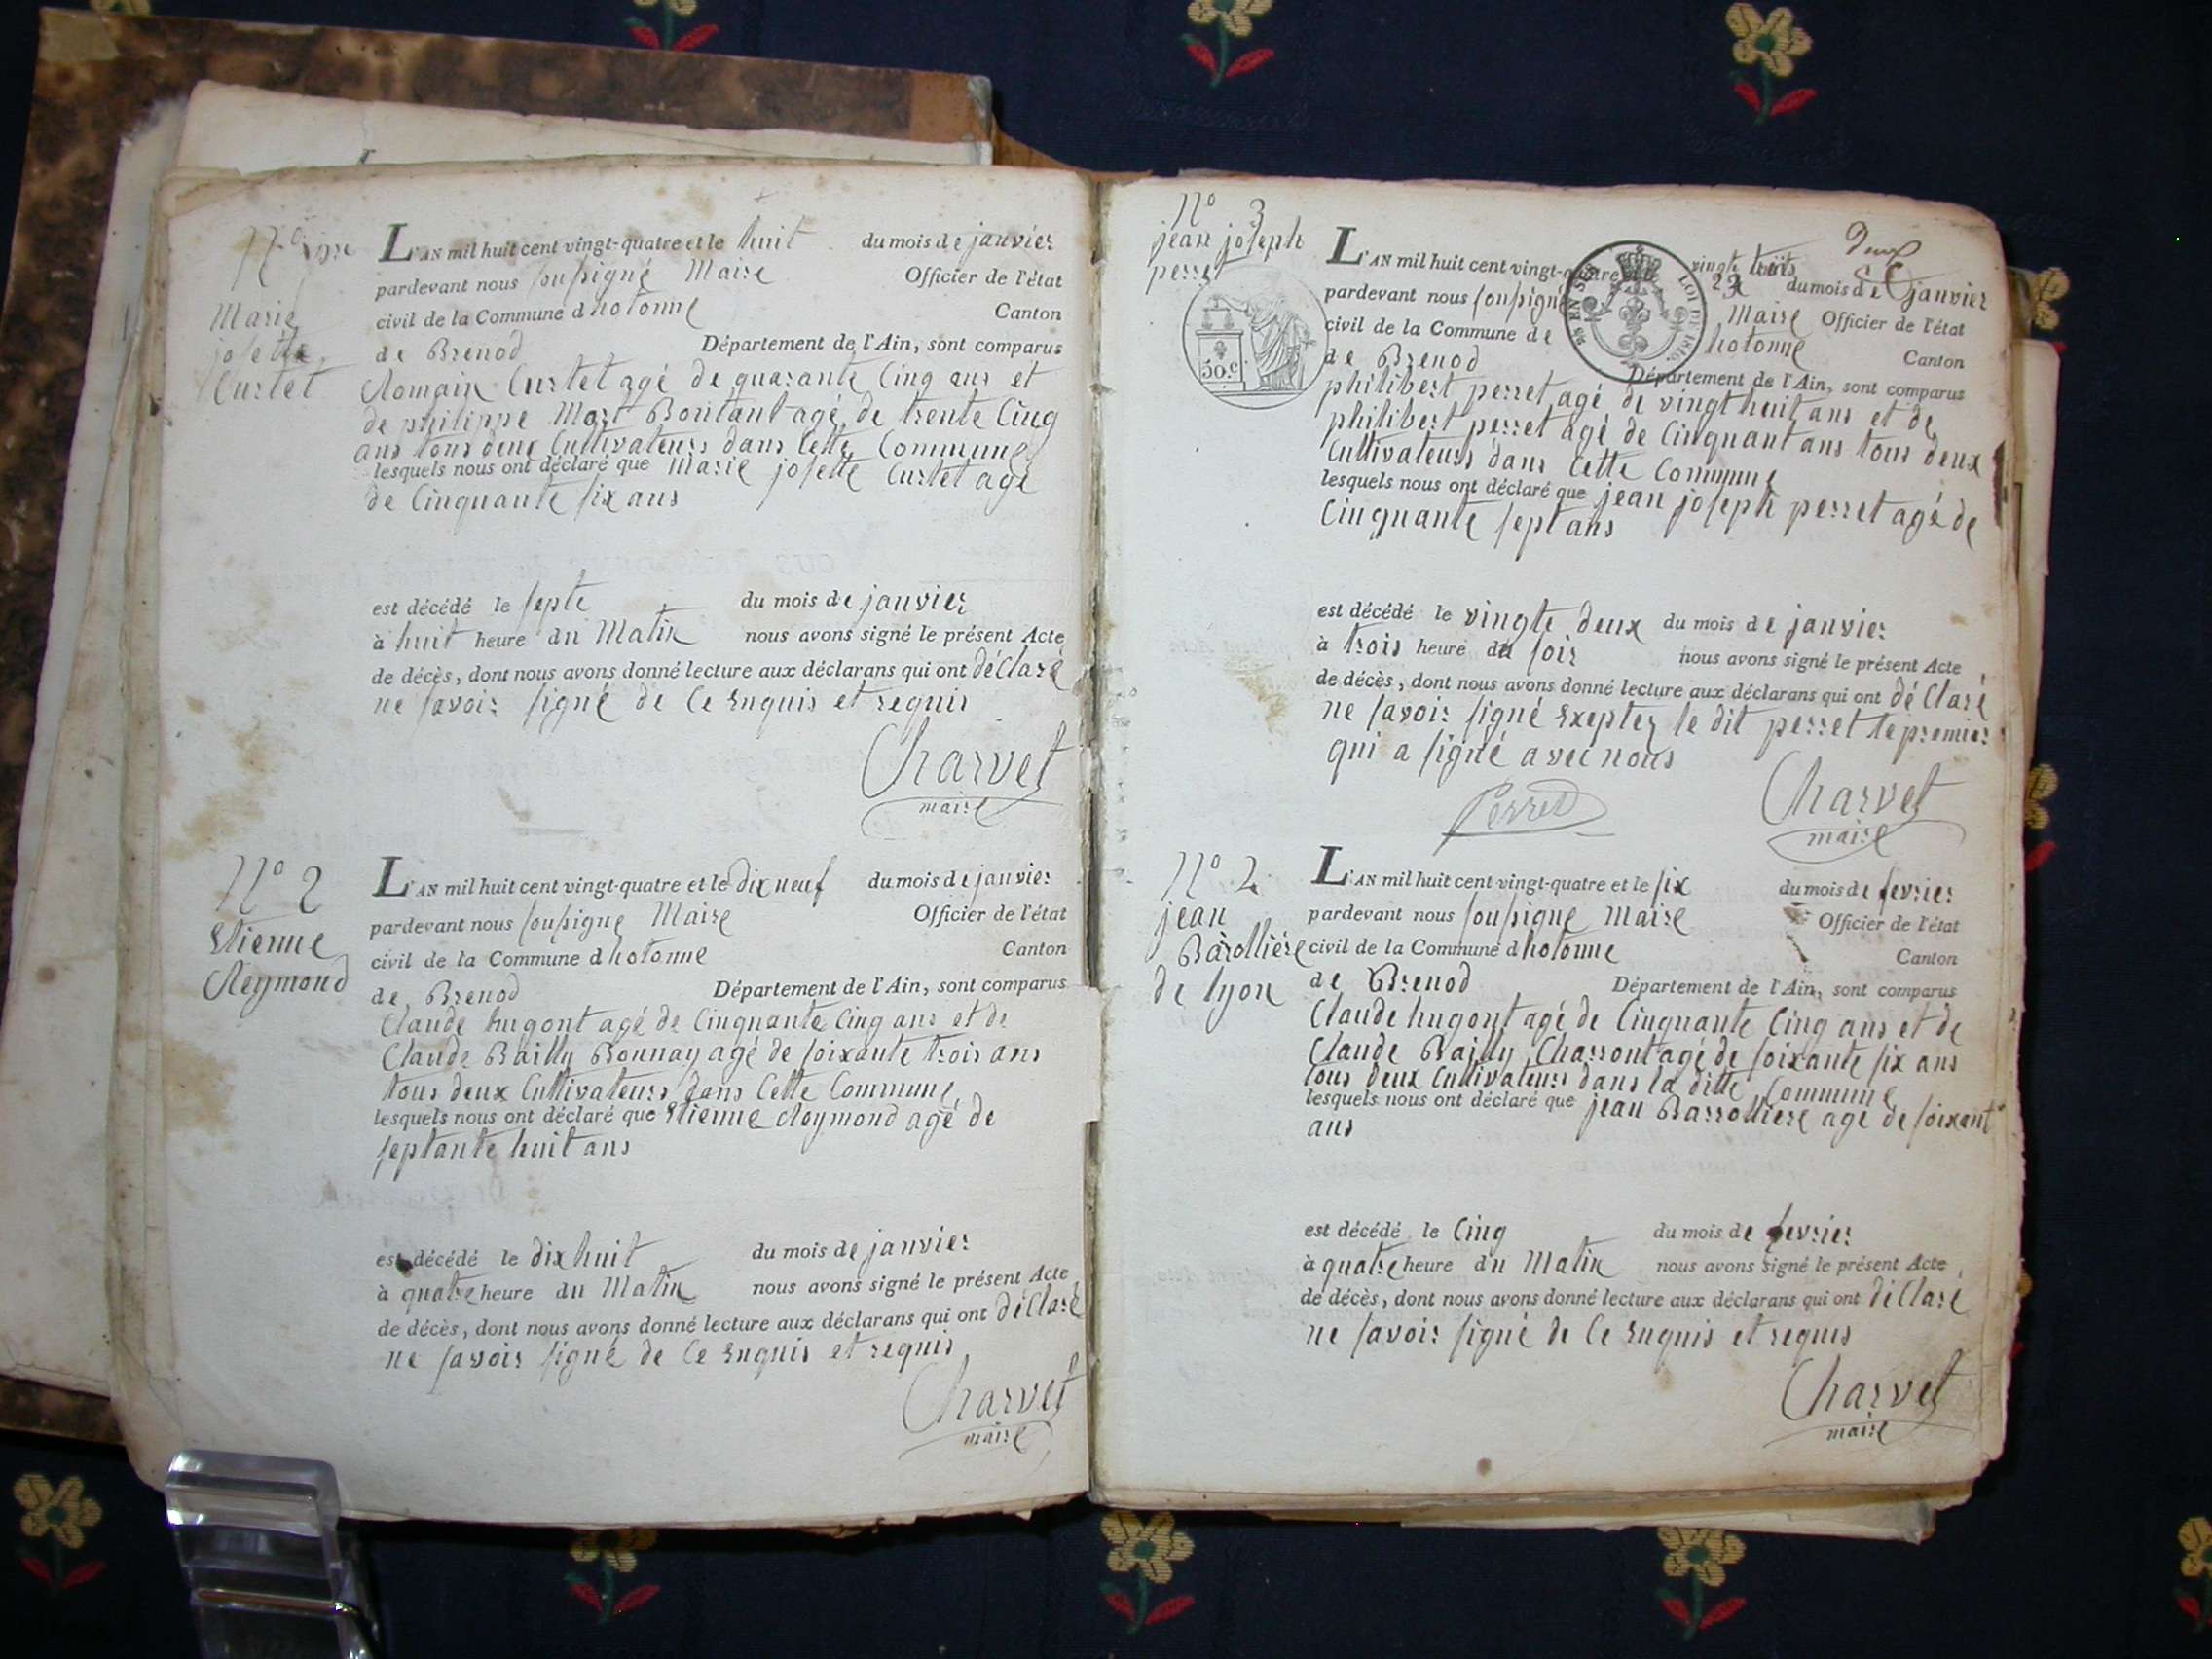 Marie
josette
Curtet
L'AN mil huit cent vingt-quatre et le huit du mois de janvier
pardevant nous soussigné Maire Officier de l'état
civil de la Commune d hotonne Canton
de Brenod Département de l'Ain, sont comparus
Romain Curtet agé de quarante Cinq ans et
de philippe Mort Boutant agé de trente Cinq
ans tous deux Cultivateurs dans Cette Commune
lesquels nous ont déclaré que Marie josette Curtet agé
de Cinquante six ans
est décédé le septe du mois de janvier
à huit heure du Matin nous avons signé le présent Acte
de décès, dont nous avons donné lecture aux déclarans qui ont déClaré
ne savoir signé de Ce enquis et requis
Charvet
maire
N° 2
Etienne
Reymond
L'AN mil huit cent vingt-quatre et le dix neuf du mois de janvier
pardevant nous soussigne Maire Officier de l'état
civil de la Commune d hotonne Canton
de Brenod Département de l'Ain, sont comparus
Claude hugont agé de Cinquante Cinq ans et de
Claude Bailly Bonnay agé de soixante trois ans
tous deux Cultivateurs dans Cette Commune
lesquels nous ont déclaré que Etienne Reymond agé de
septante huit ans
est décédé le dix huit du mois de janvier
à quatre heure du Matin nous avons signé le présent Acte
de décès, dont nous avons donné lecture aux déclarans qui ont déClaré
ne savoir signé de Ce enquis et requis
Charvet
maire
N° 3
jean joseph
perret
50.c
EN SUS LOI DE 1816.
Deux
L'AN mil huit cent vingt-quatre vingt trois
23 du mois de janvier
pardevant nous soussigné Maire Officier de l'état
civil de la Commune de hotonne Canton
de Brenod Département de l'Ain, sont comparus
philibert perret agé de vingt huit ans et de
philibert perret agé de Cinquant ans tous deux
Cultivateurs dans Cette Commune
lesquels nous ont déclaré que jean joseph perret agé de
Cinquante sept ans
est décédé le vingte deux du mois de janvier
à trois heure du soir nous avons signé le présent Acte
de décès, dont nous avons donné lecture aux déclarans qui ont déClaré
ne savoir signé exepter le dit perret le premier
qui a signé avec nous
Perret Charvet
maire
N° 2
jean
Barollière
de lyon
L'AN mil huit cent vingt-quatre et le six du mois de fevrier
pardevant nous soussigne Maire Officier de l'état
civil de la Commune d hotonne Canton
de Brenod Département de l'Ain, sont comparus
Claude hugont agé de Cinquante Cinq ans et de
Claude Bailly Charront agé de soixante six ans
tous deux Cultivateurs dans la ditte Commune
lesquels nous ont déclaré que jean Barrolliere agé de soixant
ans
est décédé le Cinq du mois de fevrier
à quatre heure du Matin nous avons signé le présent Acte
de décès, dont nous avons donné lecture aux déclarans qui ont déClaré
ne savoir signé de Ce enquis et requis
Charvet
maire